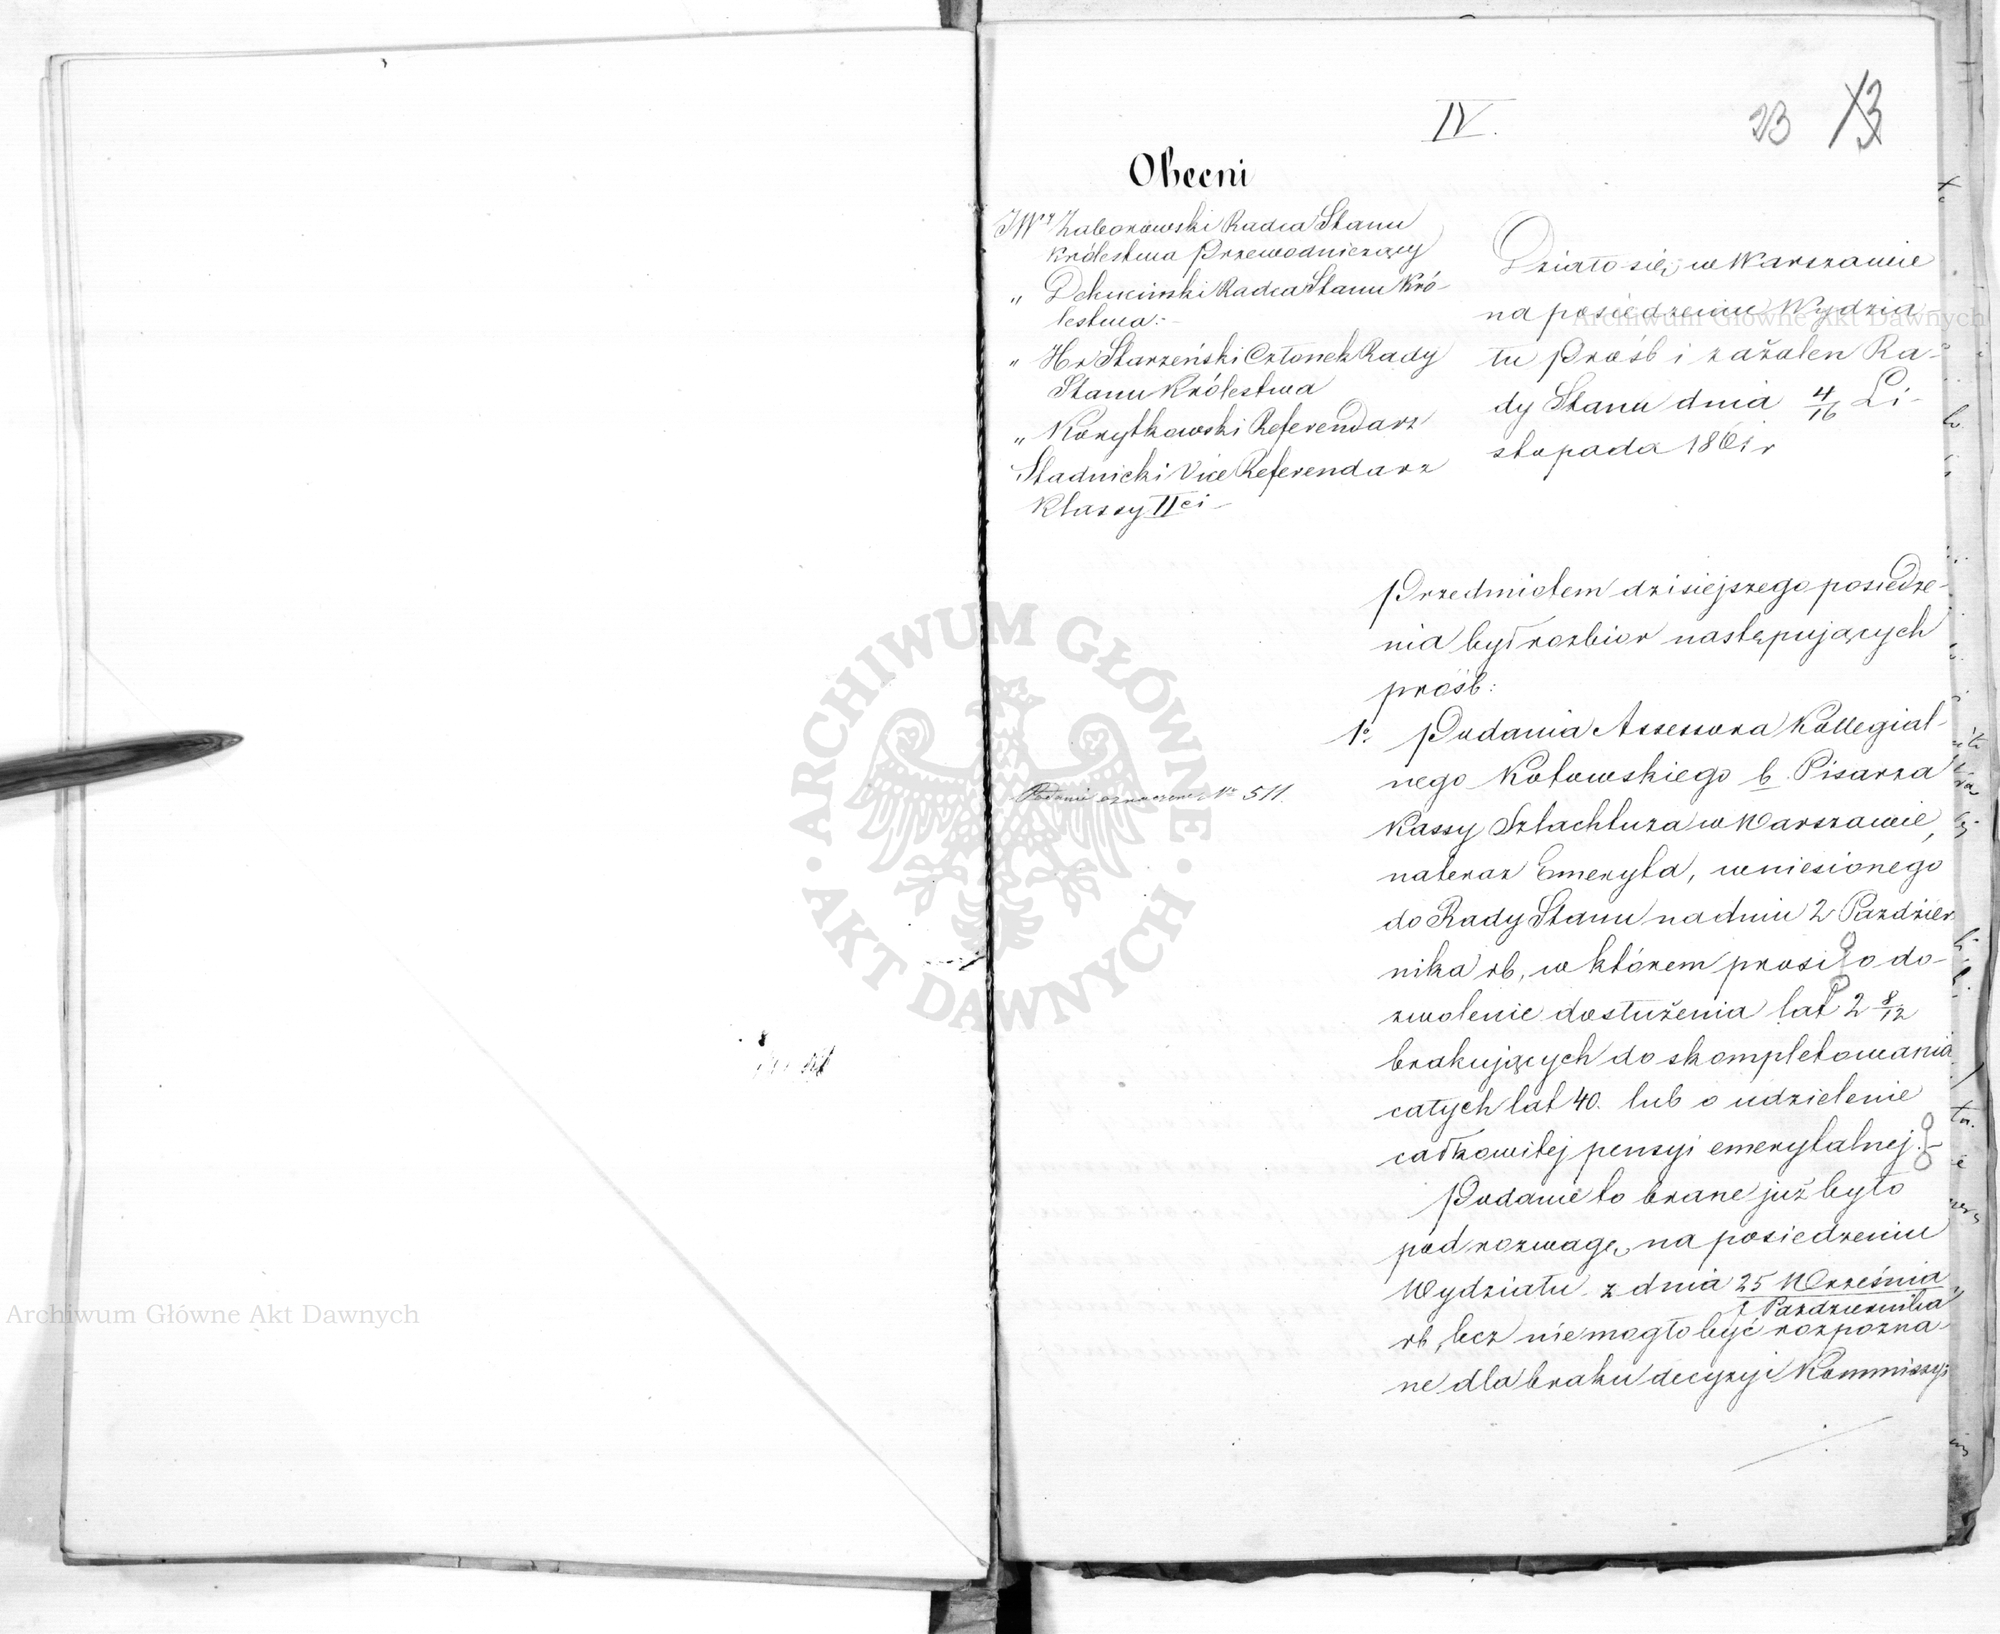 IV.
23 13
Obecni
JWy Zaborowski Radca Stanu
Królestwa Przewodniczący
" Dekuciński Radca Stanu Kró-
lestwa.-
" Hr Starzeński Członek Rady
Stanu Królestwa
" Korytkowski Referendarz
Stadnicki Vice Referendarz
Klassy IIei -
Działo się w Warszawie
na posiedzeniu Wydzia-
łu Prośb i zażaleń Ra-
dy Stanu dnia 4/16 Li-
stopada 1861 r
Przedmiotem dzisiejszego posiedze-
nia był rozbior następujących
prośb:
1o. Podania Assessora Kollegial-
nego Kotowskiego b. Pisarza
Kassy Szlachtuza w Warszawie,
nateraz Emeryta, wniesionego
do Rady Stanu na dniu 2 Paździer
nika rb, w którem prosi o do-
zwolenie dosłużenia lat 2 8/12
brakujących do skompletowania
całych lat 40. lub o udzielenie
całkowitej pensyi emerytalnej.-
Podanie oznaczone Nr 511.
Podanie to brane już było
pod rozwagę, na posiedzeniu
Wydziału z dnia 25 Września
7 Października
rb, lecz nie mogło być rozpozna-
ne dla braku decyzyi Kommissyi
ARCHIWUM GŁÓWNE
· AKT DAWNYCH ·
Archiwum Główne Akt Dawnych
Archiwum Główne Akt Dawnych